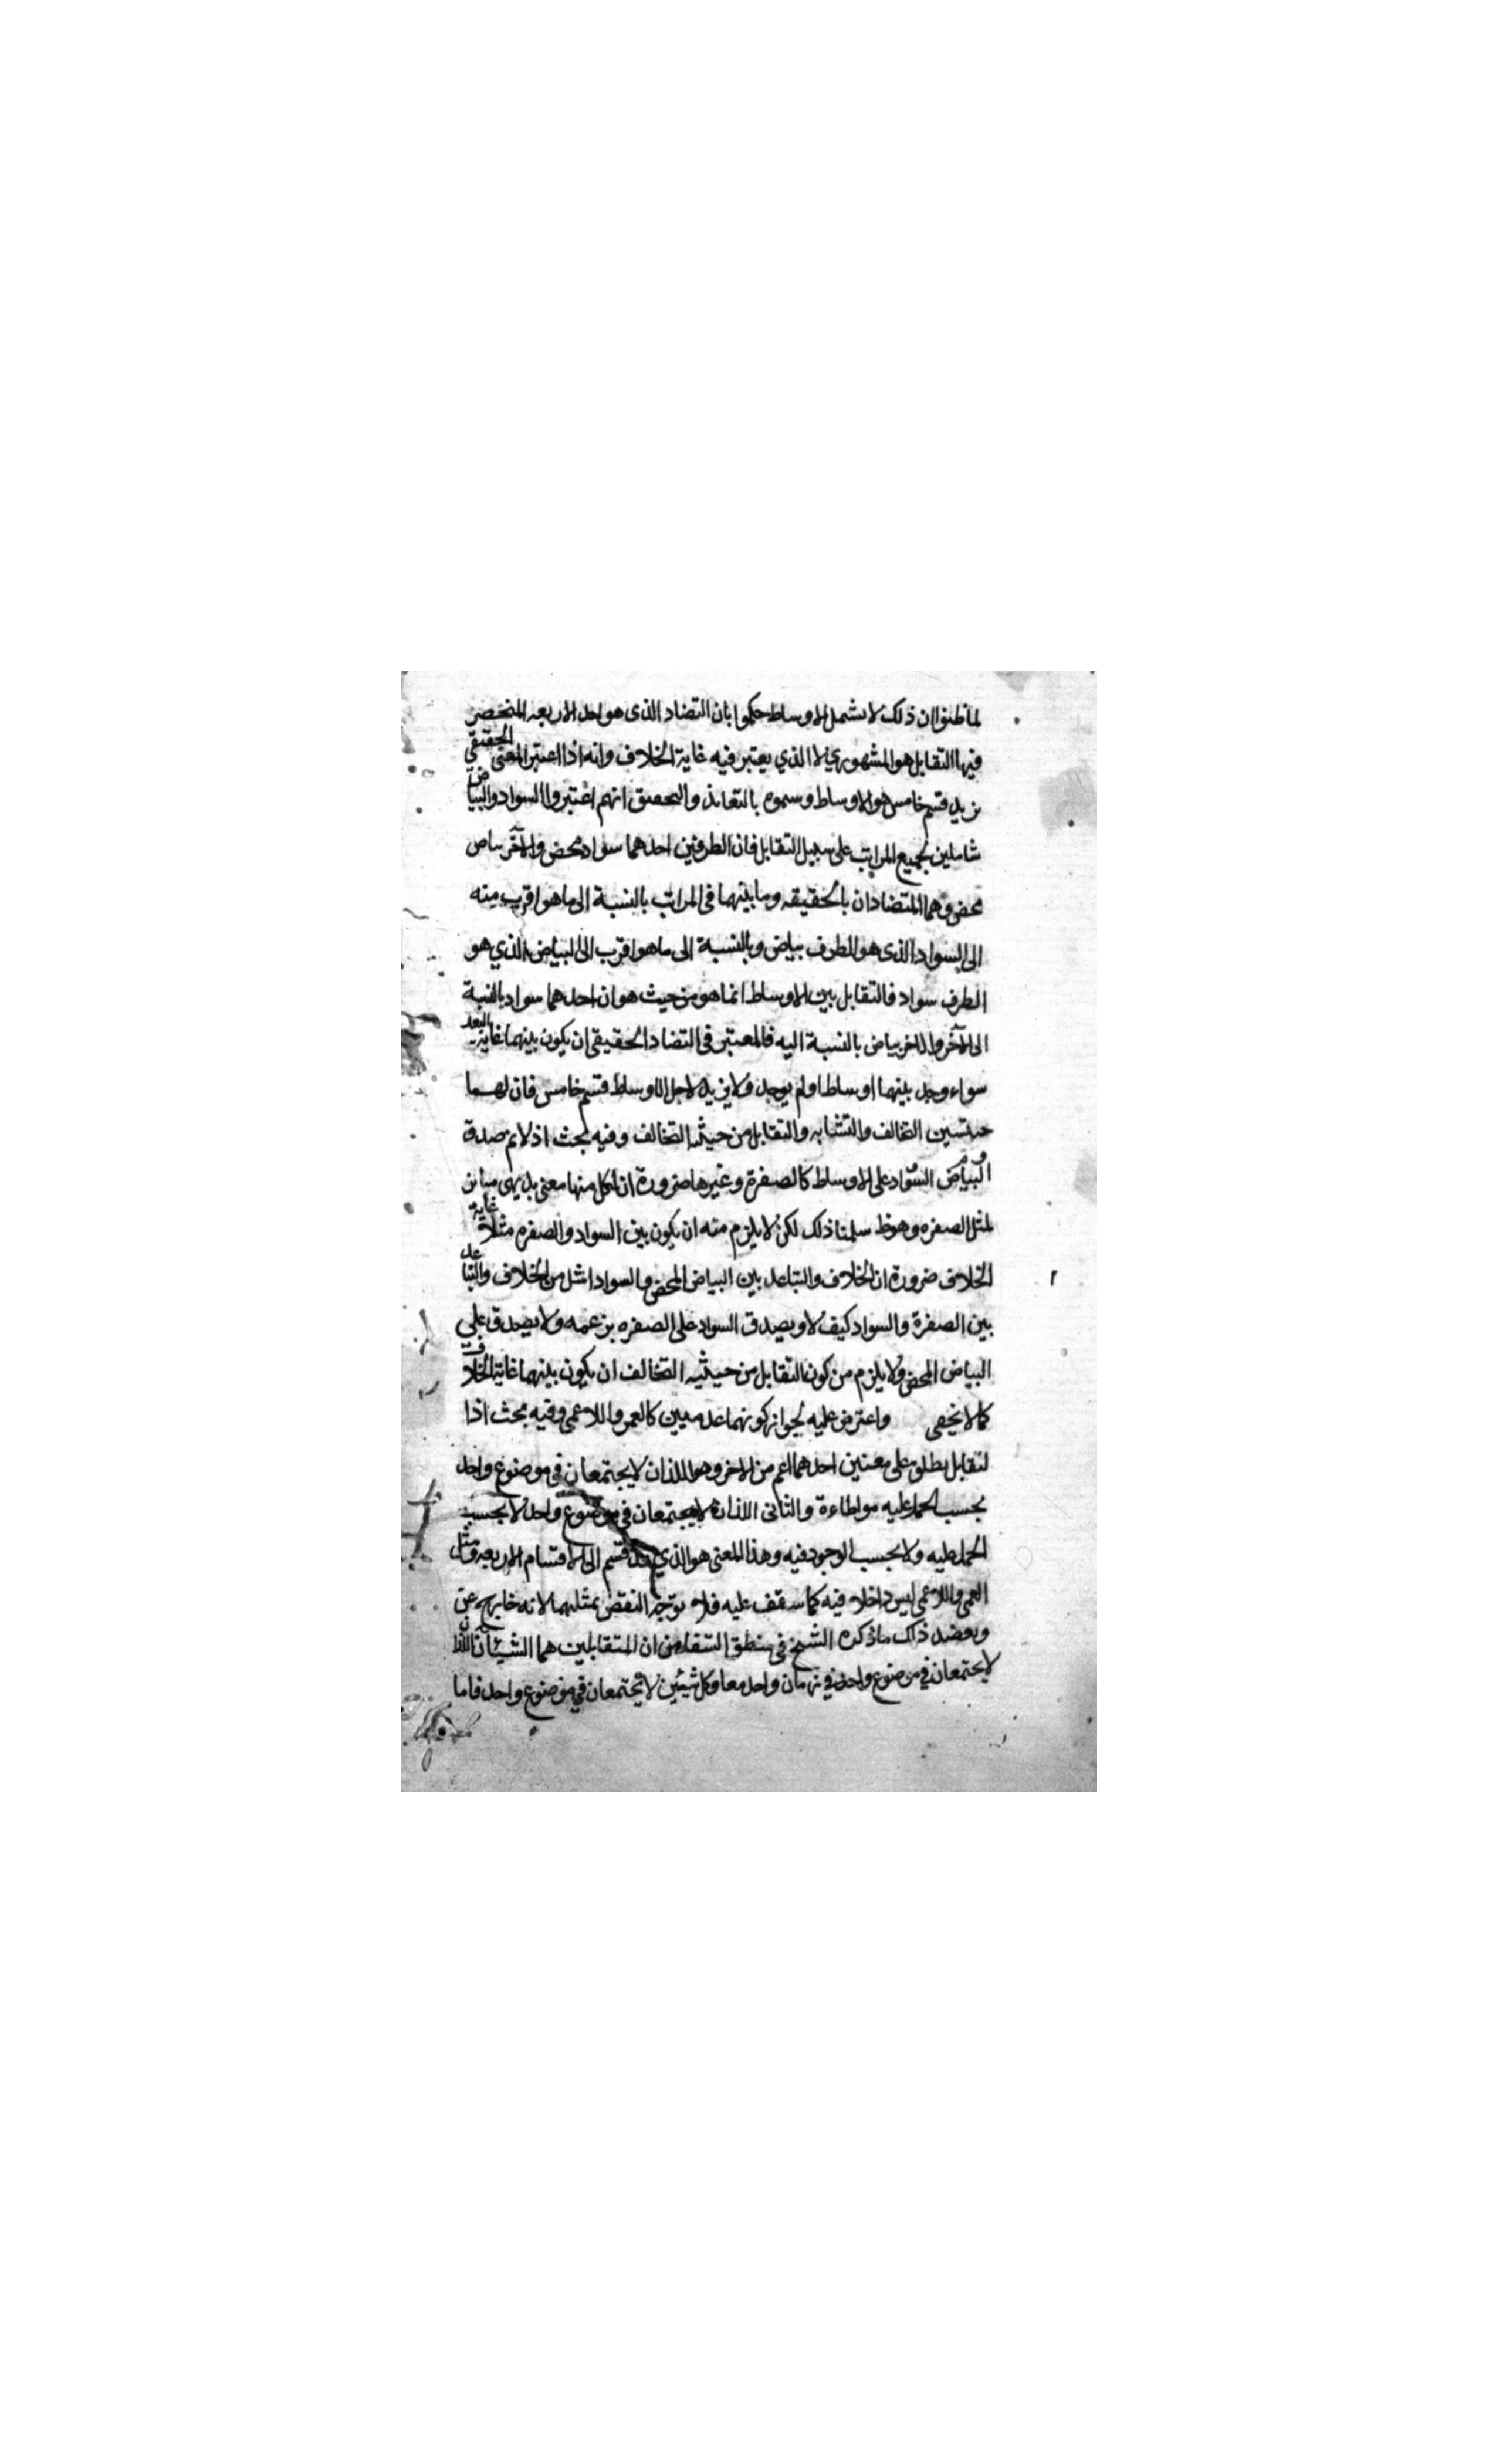 لما ظنوا ان ذلك لا يشمل الاوساط حكموا بان التضاد الذى هو احد الاربعه المنحصر
فيها التقابل هو المشهوري لا الذي يعتبر فيه غاية الخلاف وانه اذا اعتبر المعنى الحقيقي
يزيد قسم خامس هو الاوساط وسموه بالتعاند والتحقيق انهم اعتبروا السواد والبياض
شاملين لجميع المراتب على سبيل التقابل فان الطرفين احدهما سواد محض والآخر بياض
محض وهما المتضادان بالحقيقه وما بينهما فى المراتب بالنسبة الى ما هو اقرب منه
الى السواد الذى هو الطرف بياض وبالنسبة الى ما هو اقرب الى البياض الذي هو
الطرف سواد فالتقابل بين الاوساط انما هو من حيث هو ان احدهما سواد بالنسبة
الى الآخر والاخر بياض بالنسبة اليه فالمعتبر فى التضاد الحقيقى ان يكون بينهما غاية البعد
سواء وجد بينهما اوساط او لم يوجد ولا يزيد لاجل الاوساط قسم خامس فان لهما
حيثيتين التخالف والتشابه والتقابل من حيثية التخالف وفيه بحث اذ لا نم صدق
البياض والسواد على الاوساط كالصفرة وغيرها ضرورة ان لكل منها معنى بديهى مباين
لمثل الصفره وهو ظ سلمنا ذلك لكن لا يلزم منه ان يكون بين السواد والصفره مثلا غاية
الخلاف ضرورة ان الخلاف والتباعد بين البياض المحض والسواد اشد من الخلاف والتباعد
بين الصفرة والسواد كيف لا ويصدق السواد على الصفره بزعمه ولا يصدق على
البياض المحض ولا يلزم من كون التقابل من حيثيه التخالف ان يكون بينهما غاية الخلاف
كما لا يخفى واعترض عليه لجواز كونهما عدميين كالعمى واللاعمى وفيه بحث اذا
لتقابل يطلق على معنيين احدهما اعم من الاخر وهو اللذان لا يجتمعان في موضوع واحد
بحسب الحمل عليه مواطاءة والثانى اللذان لا يجتمعان في موضوع واحد لا بحسب
الحمل عليه ولا بحسب الوجود فيه وهذا المعنى هو الذي قسم الى الاقسام الاربعه ومثل
العمى واللاعمى ليس داخلا فيه كما ستقف عليه فلا يتوجه النقض بمثلهما لانه خارج عن
ويعضد ذلك ما ذكره الشيخ فى منطق الشفا من ان المتقابلين هما الشيئان اللذان
لا يجتمعان في موضوع واحد في زمان واحد معا وكل شيئين لا يجتمعان في موضوع واحد فاما